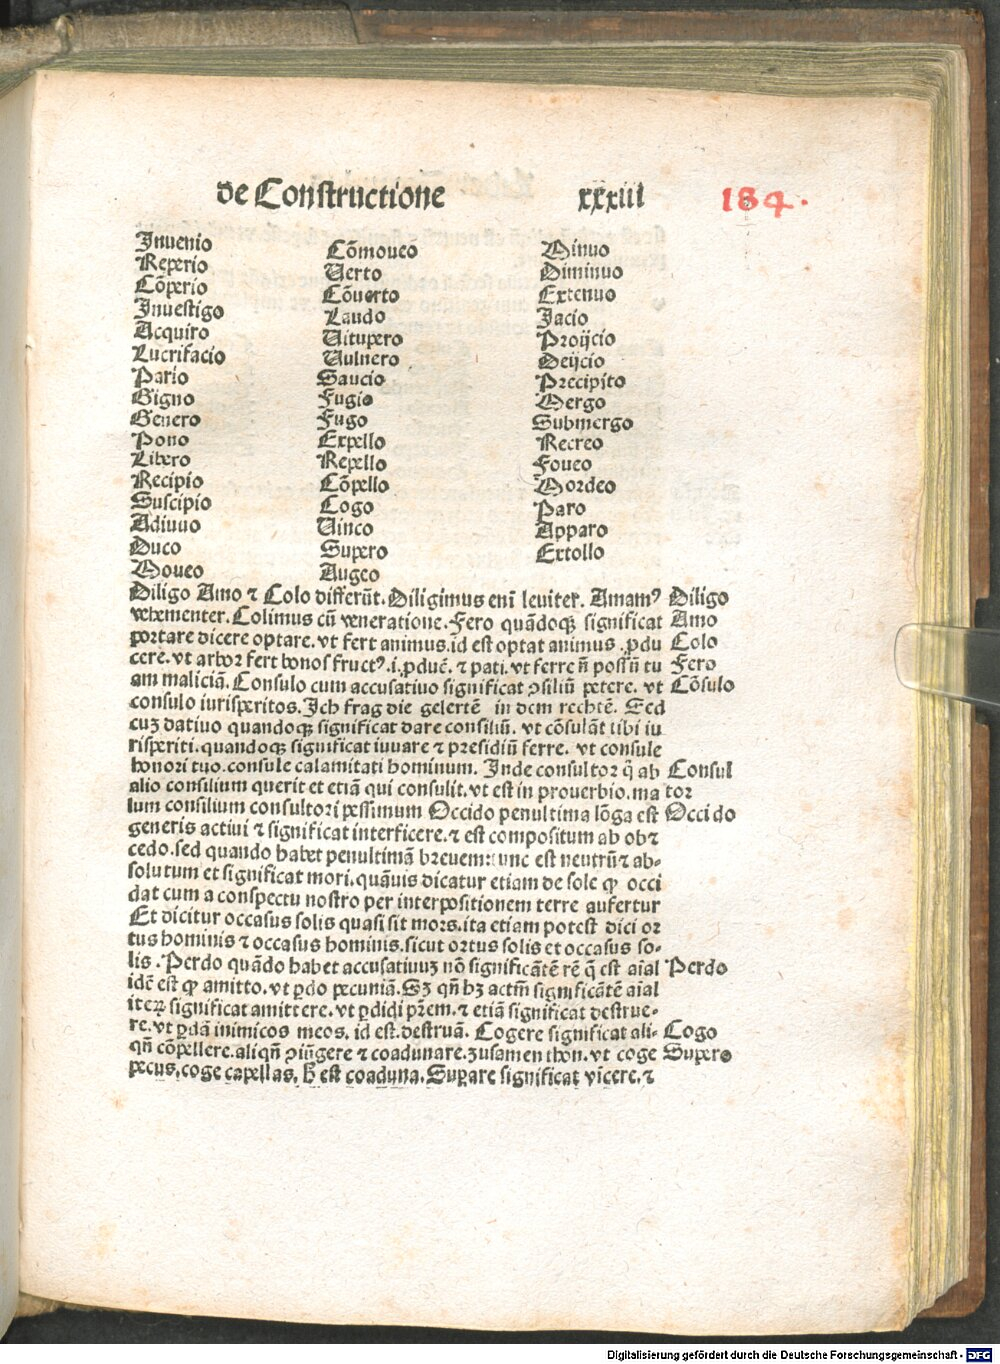 de Constructione xxxiii 184.
Inuenio
Reperio
Cōperio
Inuestigo
Acquiro
Lucrifacio
Pario
Gigno
Genero
Pono
Libero
Recipio
Suscipio
Adiuuo
Duco
Moueo
Cōmoueo
Uerto
Cōuerto
Laudo
Uitupero
Uulnero
Saucio
Fugio
Fugo
Expello
Repello
Cōpello
Cogo
Uinco
Supero
Augeo
Minuo
Diminuo
Extenuo
Jacio
Proijcio
Deijcio
Precipito
Mergo
Submergo
Recreo
Foueo
Mordeo
Paro
Apparo
Extollo
Diligo Amo ⁊ Colo differūt. Diligimus eni leuiter. Amamꝰ Diligo
vehementer. Colimus cū veneratione. Fero quādoqꝫ significat Amo
portare dicere optare. vt fert animus. id est optat animus . ꝓdu Colo
cere. vt arbor fert bonos fructꝰ. i. ꝓducē. ⁊ pati. vt ferre nō possū tu Fero
am maliciā. Consulo cum accusatiuo significat ↄsiliū petere. vt Cōsulo
consulo iurisperitos. Ich frag die gelertē in dem rechtē. Sed
cuꝫ datiuo quandoqꝫ significat dare consiliū. vt cōsulāt tibi iu
risperiti. quandoqꝫ significat iuuare ⁊ presidiū ferre. vt consule
honori tuo. consule calamitati hominum. Inde consultor q̄ ab Consul
alio consilium querit et etiā qui consulit. vt est in prouerbio. ma tor
lum consilium consultori pessimum Occido penultima lōga est Occido
generis actiui ⁊ significat interficere. ⁊ est compositum ab ob ⁊
cedo. sed quando habet penultimā breuem: tunc est neutrū ⁊ ab⸗
solutum et significat mori. quāuis dicatur etiam de sole ꝙ occi
dat cum a conspectu nostro per interpositionem terre aufertur
Et dicitur occasus solis quasi sit mors. ita etiam potest dici or
tus hominis ⁊ occasus hominis. sicut ortus solis et occasus so⸗
lis . Perdo quādo habet accusatiuuꝫ nō significātē rē q̄ est aīal Perdo
idē est ꝙ amitto. vt ꝑdo pecuniā. Sꝫ qn̄ hꝫ actm̄ significātē aīal
iteꝝ significat amittere. vt ꝑdidi pr̄em. ⁊ etiā significat destrue⸗
re. vt ꝑdā inimicos meos. id est. destruā. Cogere significat ali⸗ Cogo
qn̄ cōpellere. aliqn̄ ↄiūgere ⁊ coadunare. zusamen thon. vt coge Supero
pecus. coge capellas. h̄ est coaduna. Suꝑare significat vīcere. ⁊
Digitalisierung gefördert durch die Deutsche Forschungsgemeinschaft - DFG